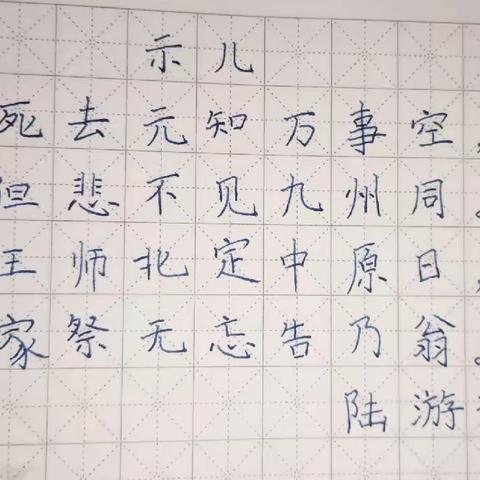 示儿
死去元知万事空，
但悲不见九州同。
王师北定中原日，
家祭无忘告乃翁。
陆游